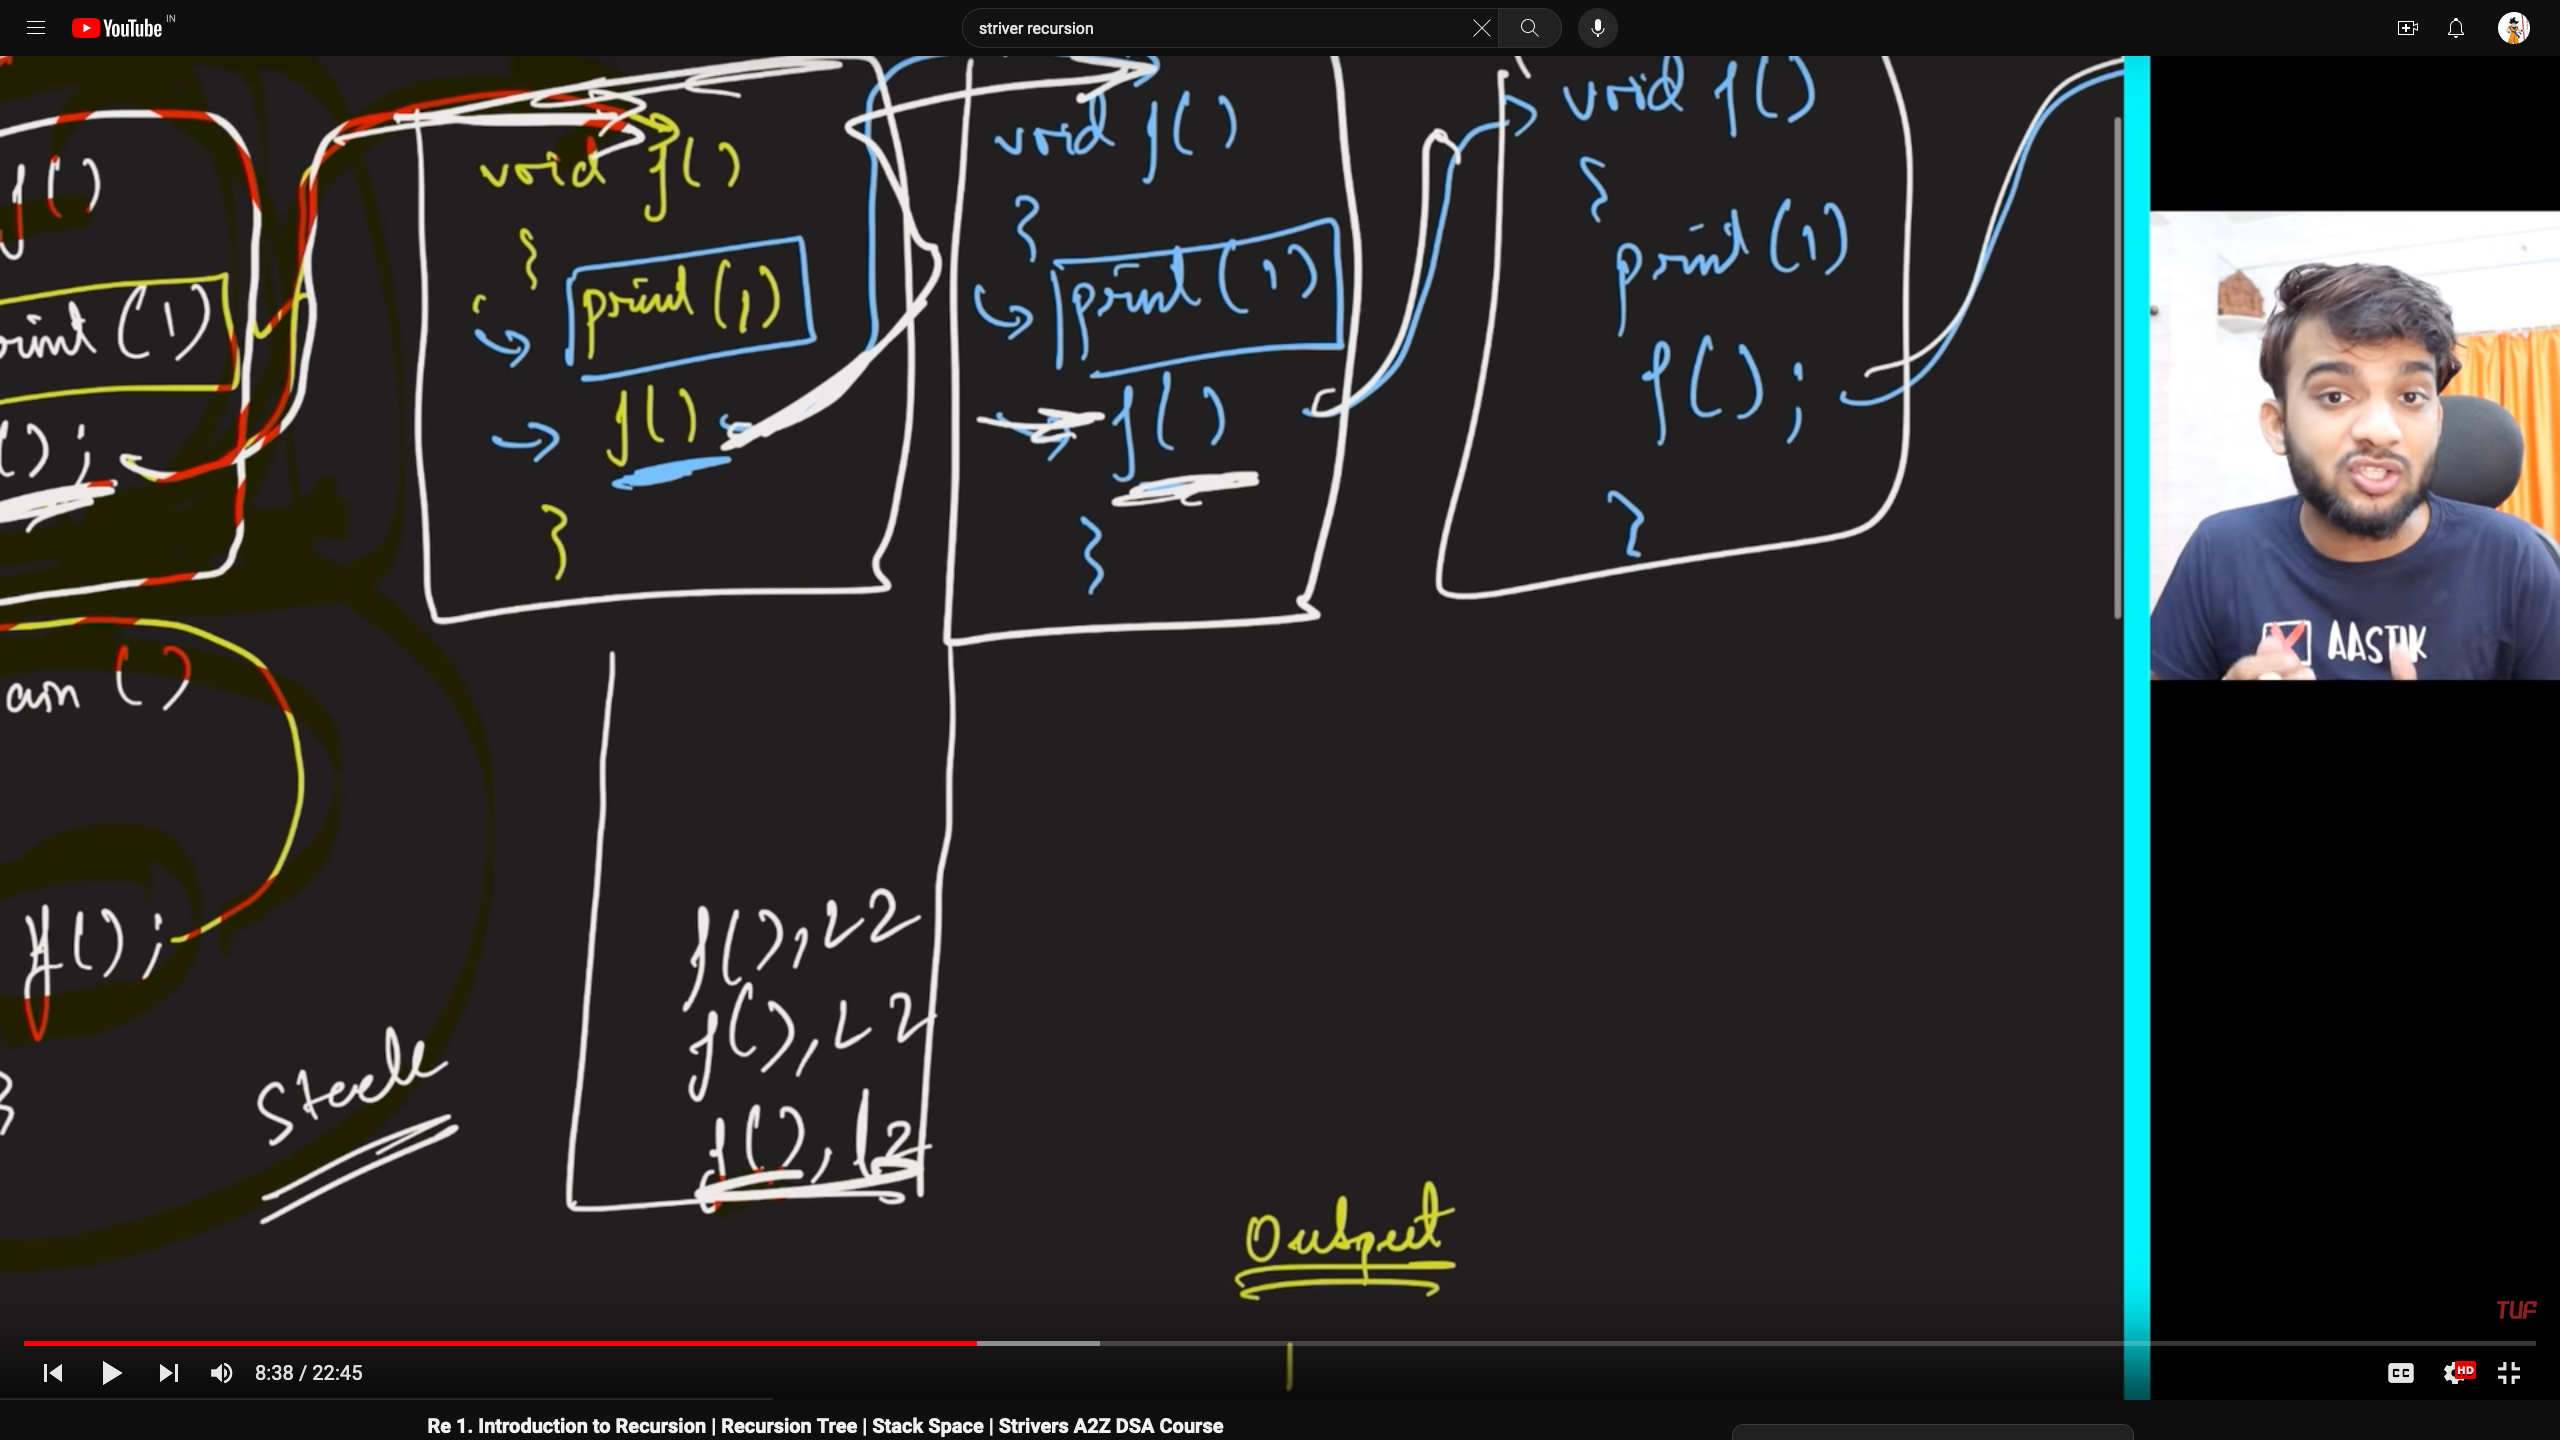 YouTube IN
striver recursion
f()
print (1)
();
void f()
{
print (1)
f()
}
void f()
{
print (1)
f()
}
void f()
{
print (1)
f();
}
ain ()
f();
}
Stack
f(), L2
f(), L2
f(), L2
Output
1
AASTIK
TUF
8:38 / 22:45
CC
HD
Re 1. Introduction to Recursion | Recursion Tree | Stack Space | Strivers A2Z DSA Course